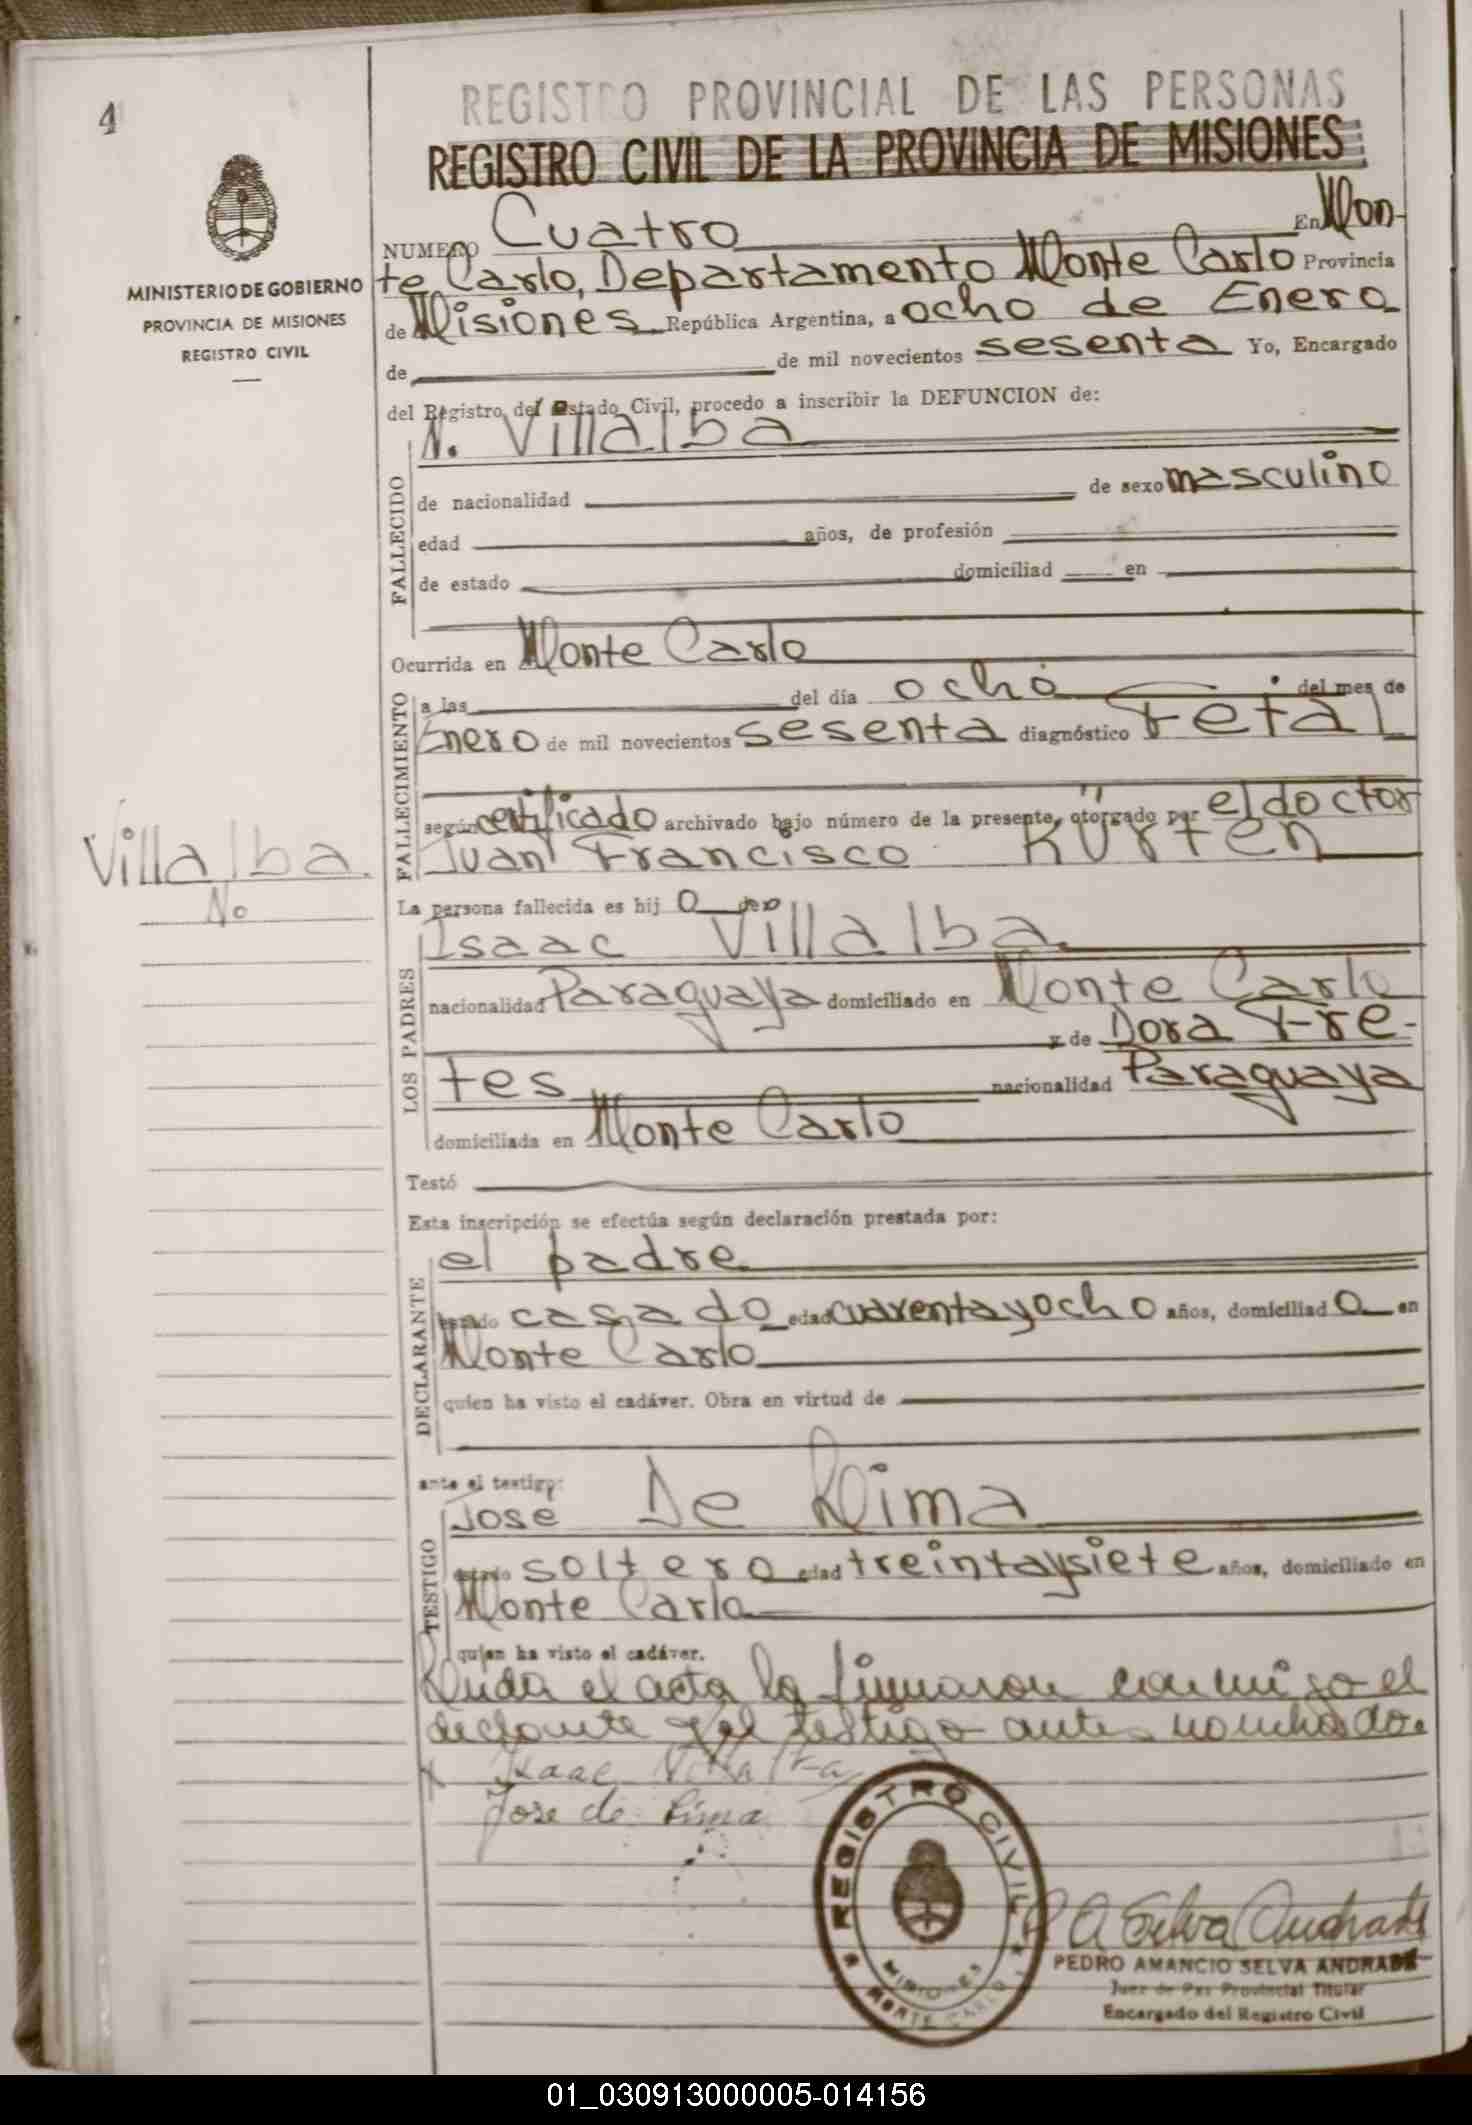 4
REGISTRO PROVINCIAL DE LAS PERSONAS
REGISTRO CIVIL DE LA PROVINCIA DE MISIONES
MINISTERIO DE GOBIERNO
PROVINCIA DE MISIONES
REGISTRO CIVIL
NUMERO Cuatro En Mon-
te Carlo, Departamento Monte Carlo Provincia
de Misiones República Argentina, a ocho de Enero
de de mil novecientos sesenta Yo, Encargado
del Registro del Estado Civil, procedo a inscribir la DEFUNCION de:
N. Villalba
FALLECIDO
de nacionalidad de sexo masculino
edad años, de profesión
de estado domiciliad en
Ocurrida en Monte Carlo
FALLECIMIENTO
a las del día ocho del mes de
Enero de mil novecientos sesenta diagnóstico Fetal
según certificado archivado bajo número de la presente, otorgado por el doctor
Juan Francisco Kürten
Villalba
No
La persona fallecida es hij o de
LOS PADRES
Isaac Villalba
nacionalidad Paraguaya domiciliado en Monte Carlo
y de Dora Fre-
tes nacionalidad Paraguaya
domiciliada en Monte Carlo
Testó
Esta inscripción se efectúa según declaración prestada por:
DECLARANTE
el padre
estado casado edad cuarentayocho años, domiciliad o en
Monte Carlo
quien ha visto el cadáver. Obra en virtud de
ante el testigo:
TESTIGO
José De Lima
estado soltero edad treintaysiete años, domiciliado en
Monte Carlo
quien ha visto el cadáver.
el acta la firmaron conmigo el
y el testigo antes
Isaac Villalba
Jose de Lima
REGISTRO CIVIL
MISIONES
MONTE CARLO
P A Selva Andrade
PEDRO AMANCIO SELVA ANDRADE
Juez de Paz Provincial Titular
Encargado del Registro Civil
01_030913000005-014156